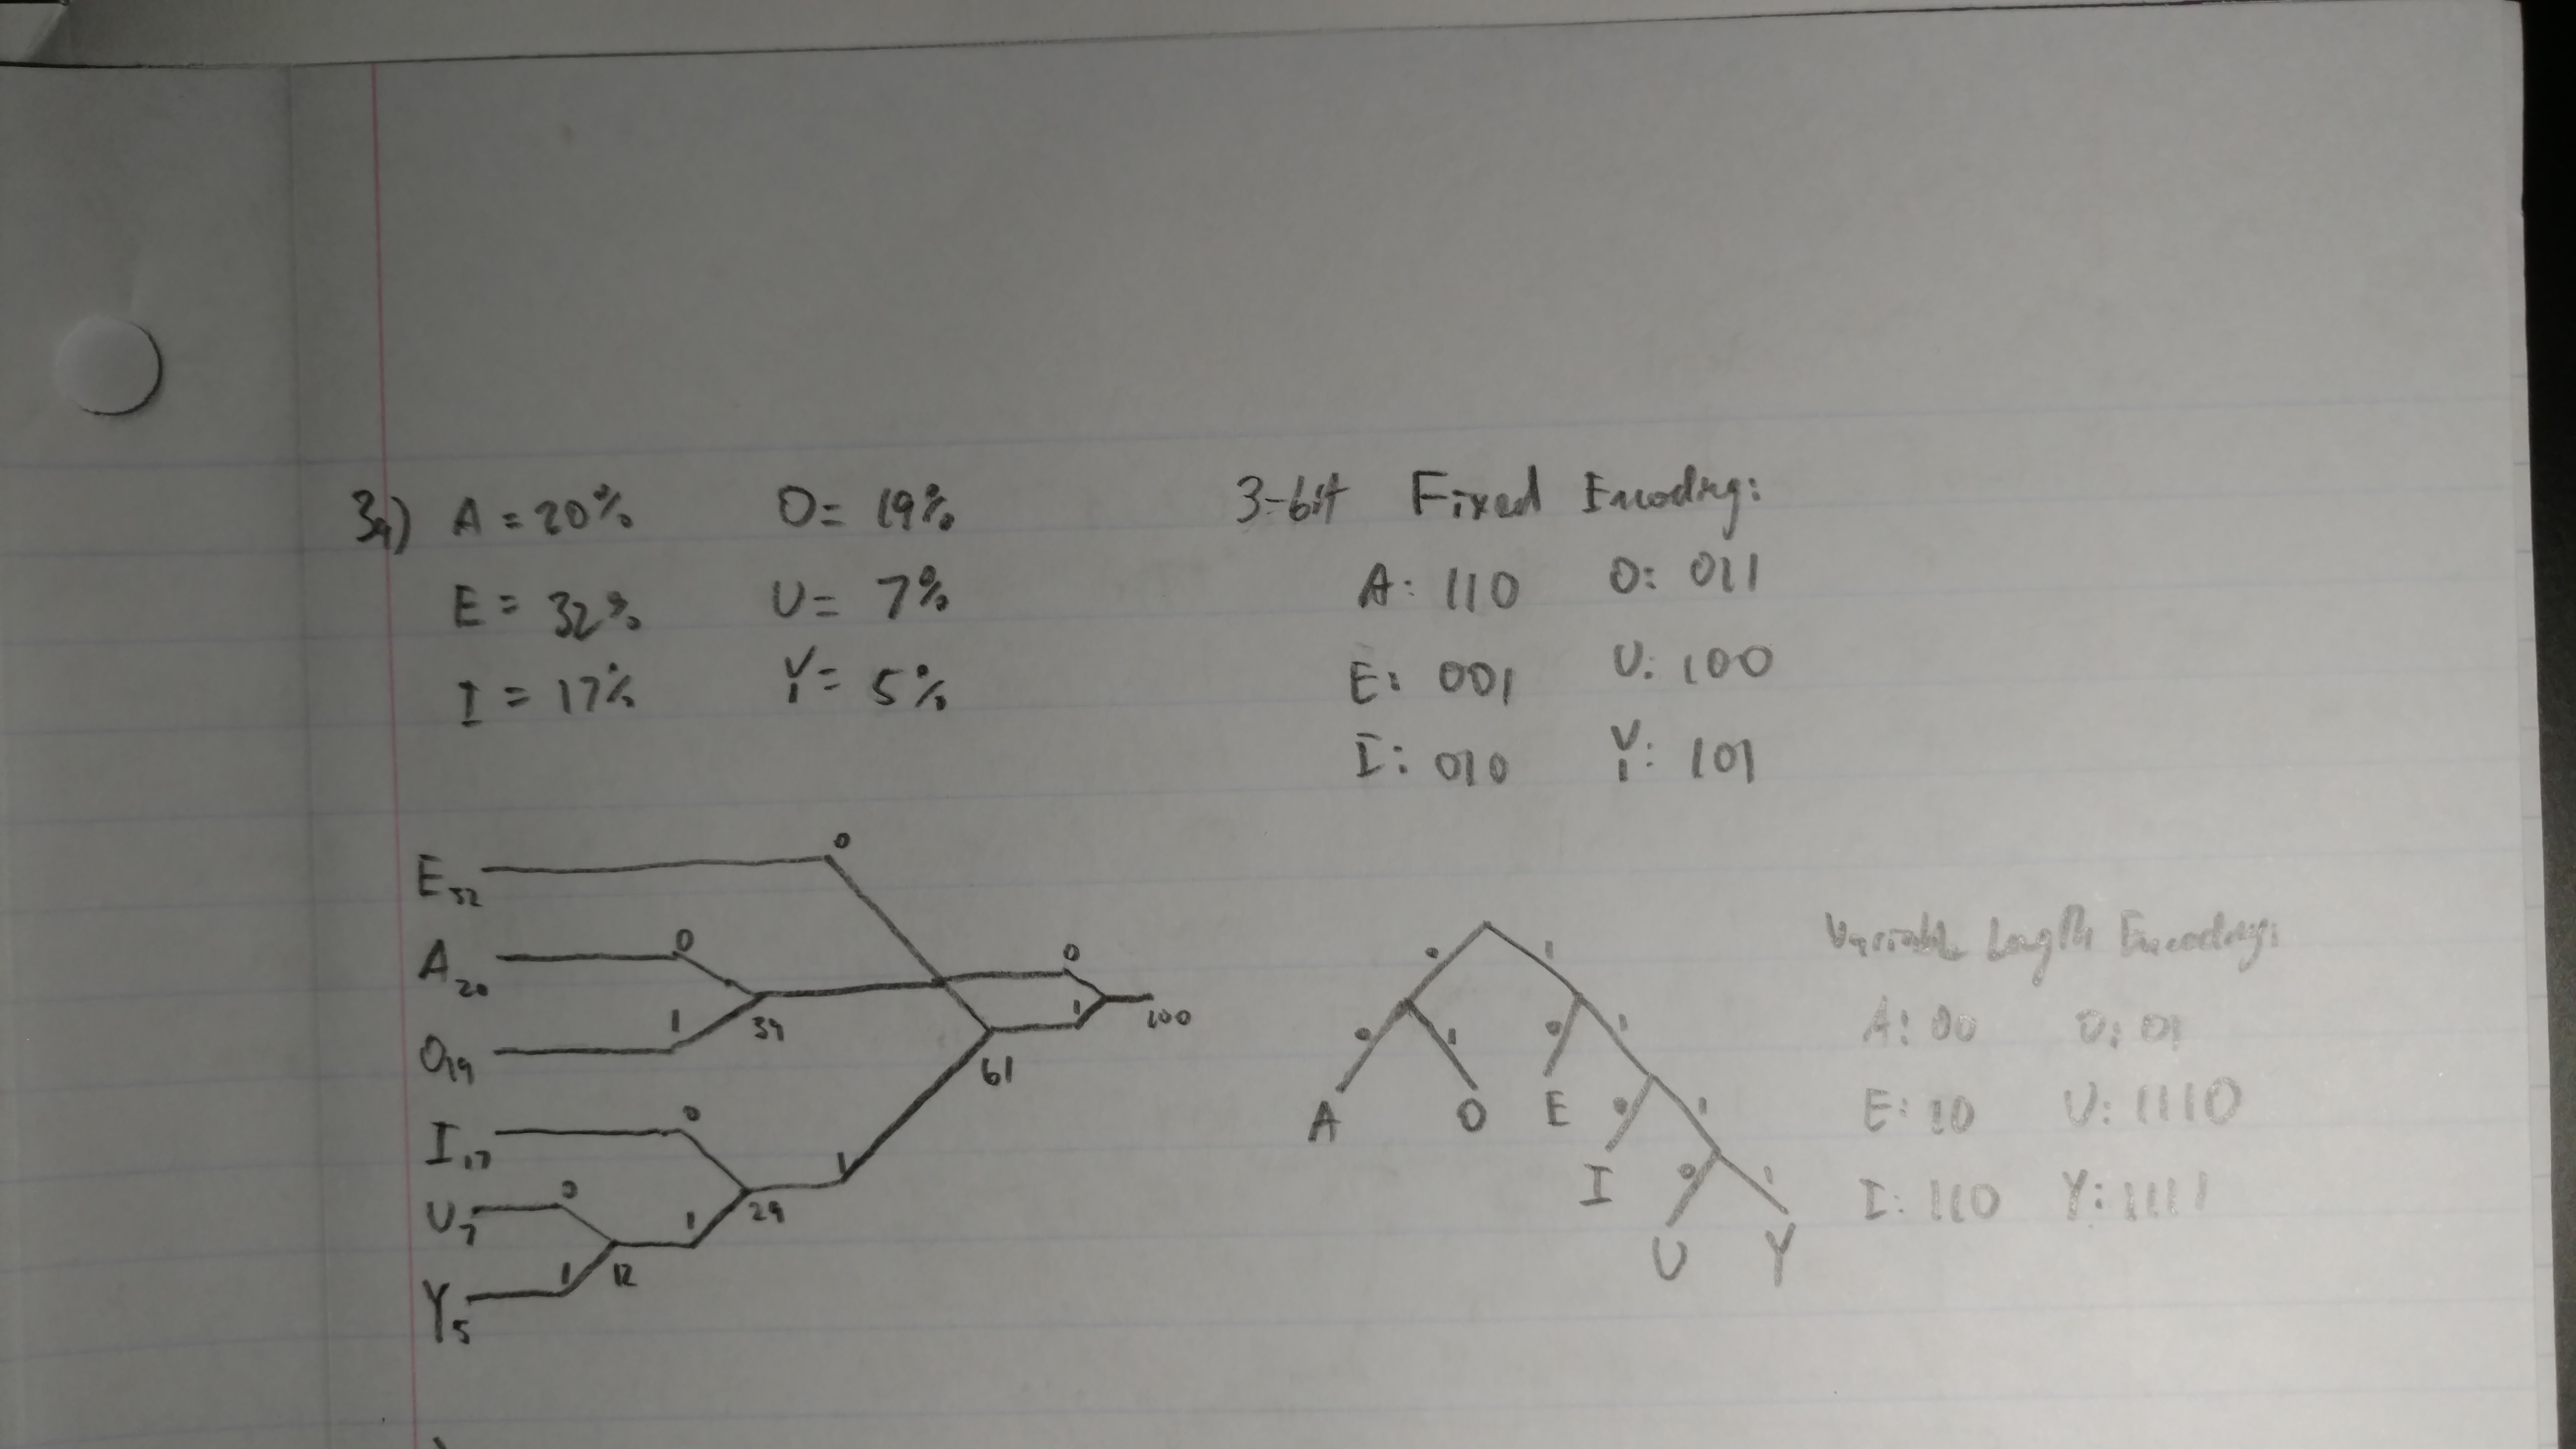 3a) A = 20% O = 19% 3-bit Fixed Encoding:
E = 32% U = 7% A: 110 O: 011
I = 17% Y = 5% E: 001 U: 100
I: 010 Y: 101
E32 0
A20 0 0 100
O19 1 39 1 61
I17 0
U7 0 1 29 1
Y5 1 12
0 1
0 1 0 1
A O E 0 1
I 0 1
U Y
Variable Length Encoding:
A: 00 O: 01
E: 10 U: 1110
I: 110 Y: 1111